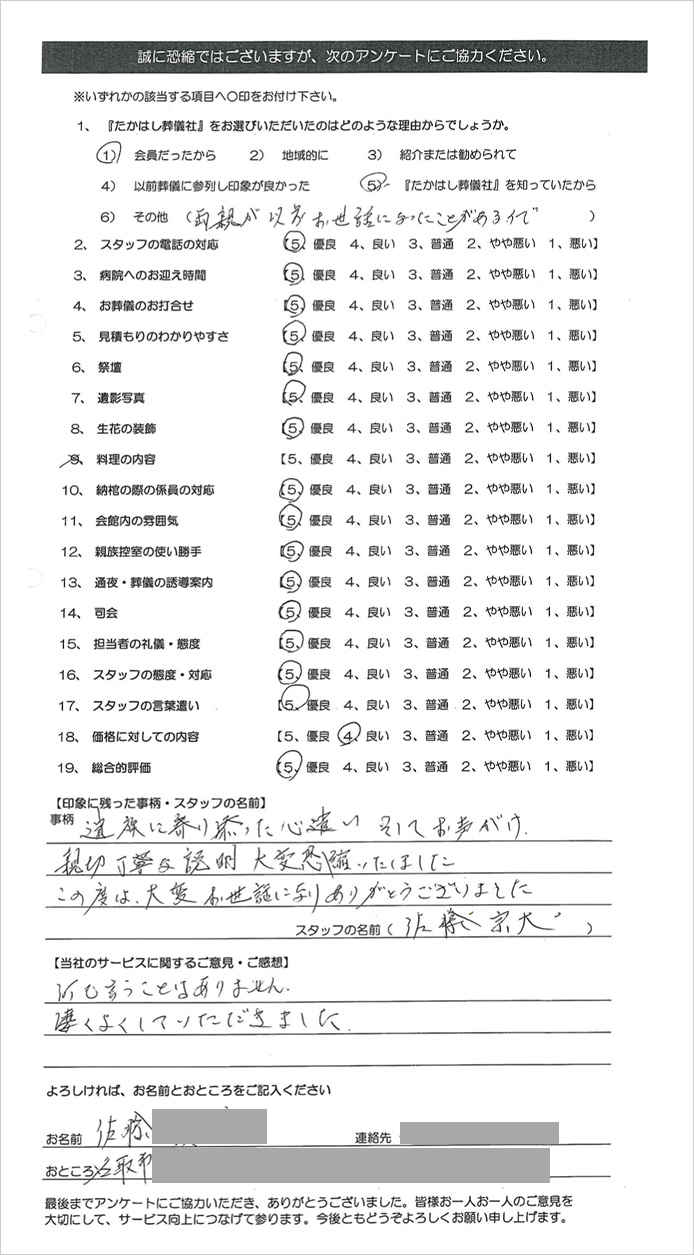 誠に恐縮ではございますが、次のアンケートにご協力ください。
※いずれかの該当する項目へ〇印をお付け下さい。
1、 『たかはし葬儀社』をお選びいただいたのはどのような理由からでしょうか。
1) 会員だったから 2) 地域的に 3) 紹介または勧められて
4) 以前葬儀に参列し印象が良かった 5) 『たかはし葬儀社』を知っていたから
6) その他 (両親が以前お世話になったことがあるので )
2、 スタッフの電話の対応 【5、優良 4、良い 3、普通 2、やや悪い 1、悪い】
3、 病院へのお迎え時間 【5、優良 4、良い 3、普通 2、やや悪い 1、悪い】
4、 お葬儀のお打合せ 【5、優良 4、良い 3、普通 2、やや悪い 1、悪い】
5、 見積もりのわかりやすさ 【5、優良 4、良い 3、普通 2、やや悪い 1、悪い】
6、 祭壇 【5、優良 4、良い 3、普通 2、やや悪い 1、悪い】
7、 遺影写真 【5、優良 4、良い 3、普通 2、やや悪い 1、悪い】
8、 生花の装飾 【5、優良 4、良い 3、普通 2、やや悪い 1、悪い】
9、 料理の内容 【5、優良 4、良い 3、普通 2、やや悪い 1、悪い】
10、 納棺の際の係員の対応 【5、優良 4、良い 3、普通 2、やや悪い 1、悪い】
11、 会館内の雰囲気 【5、優良 4、良い 3、普通 2、やや悪い 1、悪い】
12、 親族控室の使い勝手 【5、優良 4、良い 3、普通 2、やや悪い 1、悪い】
13、 通夜・葬儀の誘導案内 【5、優良 4、良い 3、普通 2、やや悪い 1、悪い】
14、 司会 【5、優良 4、良い 3、普通 2、やや悪い 1、悪い】
15、 担当者の礼儀・態度 【5、優良 4、良い 3、普通 2、やや悪い 1、悪い】
16、 スタッフの態度・対応 【5、優良 4、良い 3、普通 2、やや悪い 1、悪い】
17、 スタッフの言葉遣い 【5、優良 4、良い 3、普通 2、やや悪い 1、悪い】
18、 価格に対しての内容 【5、優良 4、良い 3、普通 2、やや悪い 1、悪い】
19、 総合的評価 【5、優良 4、良い 3、普通 2、やや悪い 1、悪い】
【印象に残った事柄・スタッフの名前】
事柄 遺族に寄り添った心遣い そしてお声がけ.
親切丁寧な説明 大変恐縮いたしました
この度は、大変お世話になりありがとうございました
スタッフの名前 ( 佐藤 宗大 )
【当社のサービスに関するご意見・ご感想】
何も言うことはありません.
凄くよくしていただきました.
よろしければ、お名前とおところをご記入ください
お名前 佐藤 連絡先
おところ 名取市
最後までアンケートにご協力いただき、ありがとうございました。皆様お一人お一人のご意見を
大切にして、サービス向上につなげて参ります。今後ともどうぞよろしくお願い申し上げます。